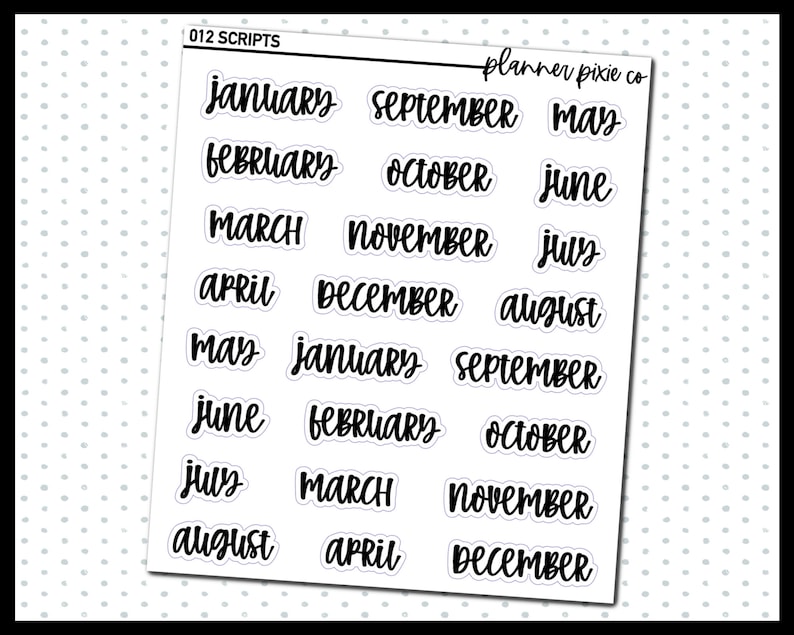 012 SCRIPTS
planner pixie co
january september may
february october june
march november july
april december august
may january september
june february october
july march november
august april december